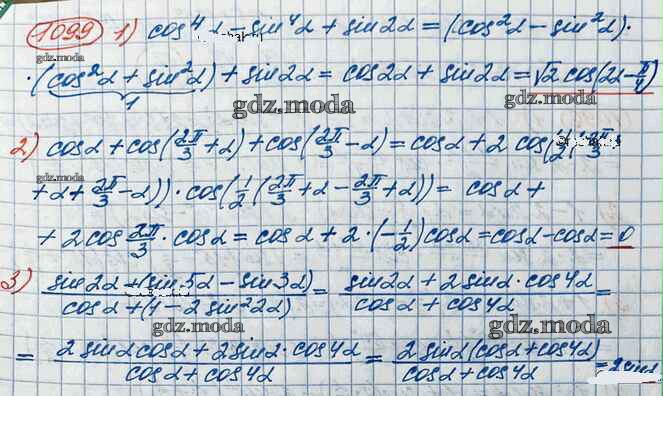 1099 1) cos⁴α – sin⁴α + sin2α = (cos²α – sin²α)·
·(cos²α + sin²α) + sin2α = cos2α + sin2α = √2 cos(2α – π/4)
1
gdz.moda
2) cosα + cos(2π/3 + α) + cos(2π/3 – α) = cosα + 2 cos(1/2(2π/3
gdz.moda
+ α + 2π/3 – α))·cos(1/2(2π/3 + α – 2π/3 + α)) = cosα +
+ 2cos 2π/3 · cosα = cosα + 2·(–1/2)cosα = cosα – cosα = 0
gdz.moda
3) (sin2α + (sin5α – sin3α))/(cosα + (1 – 2sin²2α)) = (sin2α + 2sinα·cos4α)/(cosα + cos4α) =
gdz.moda gdz.moda
= (2sinαcosα + 2sinα·cos4α)/(cosα + cos4α) = (2sinα(cosα + cos4α))/(cosα + cos4α) = 2sinα
gdz.moda